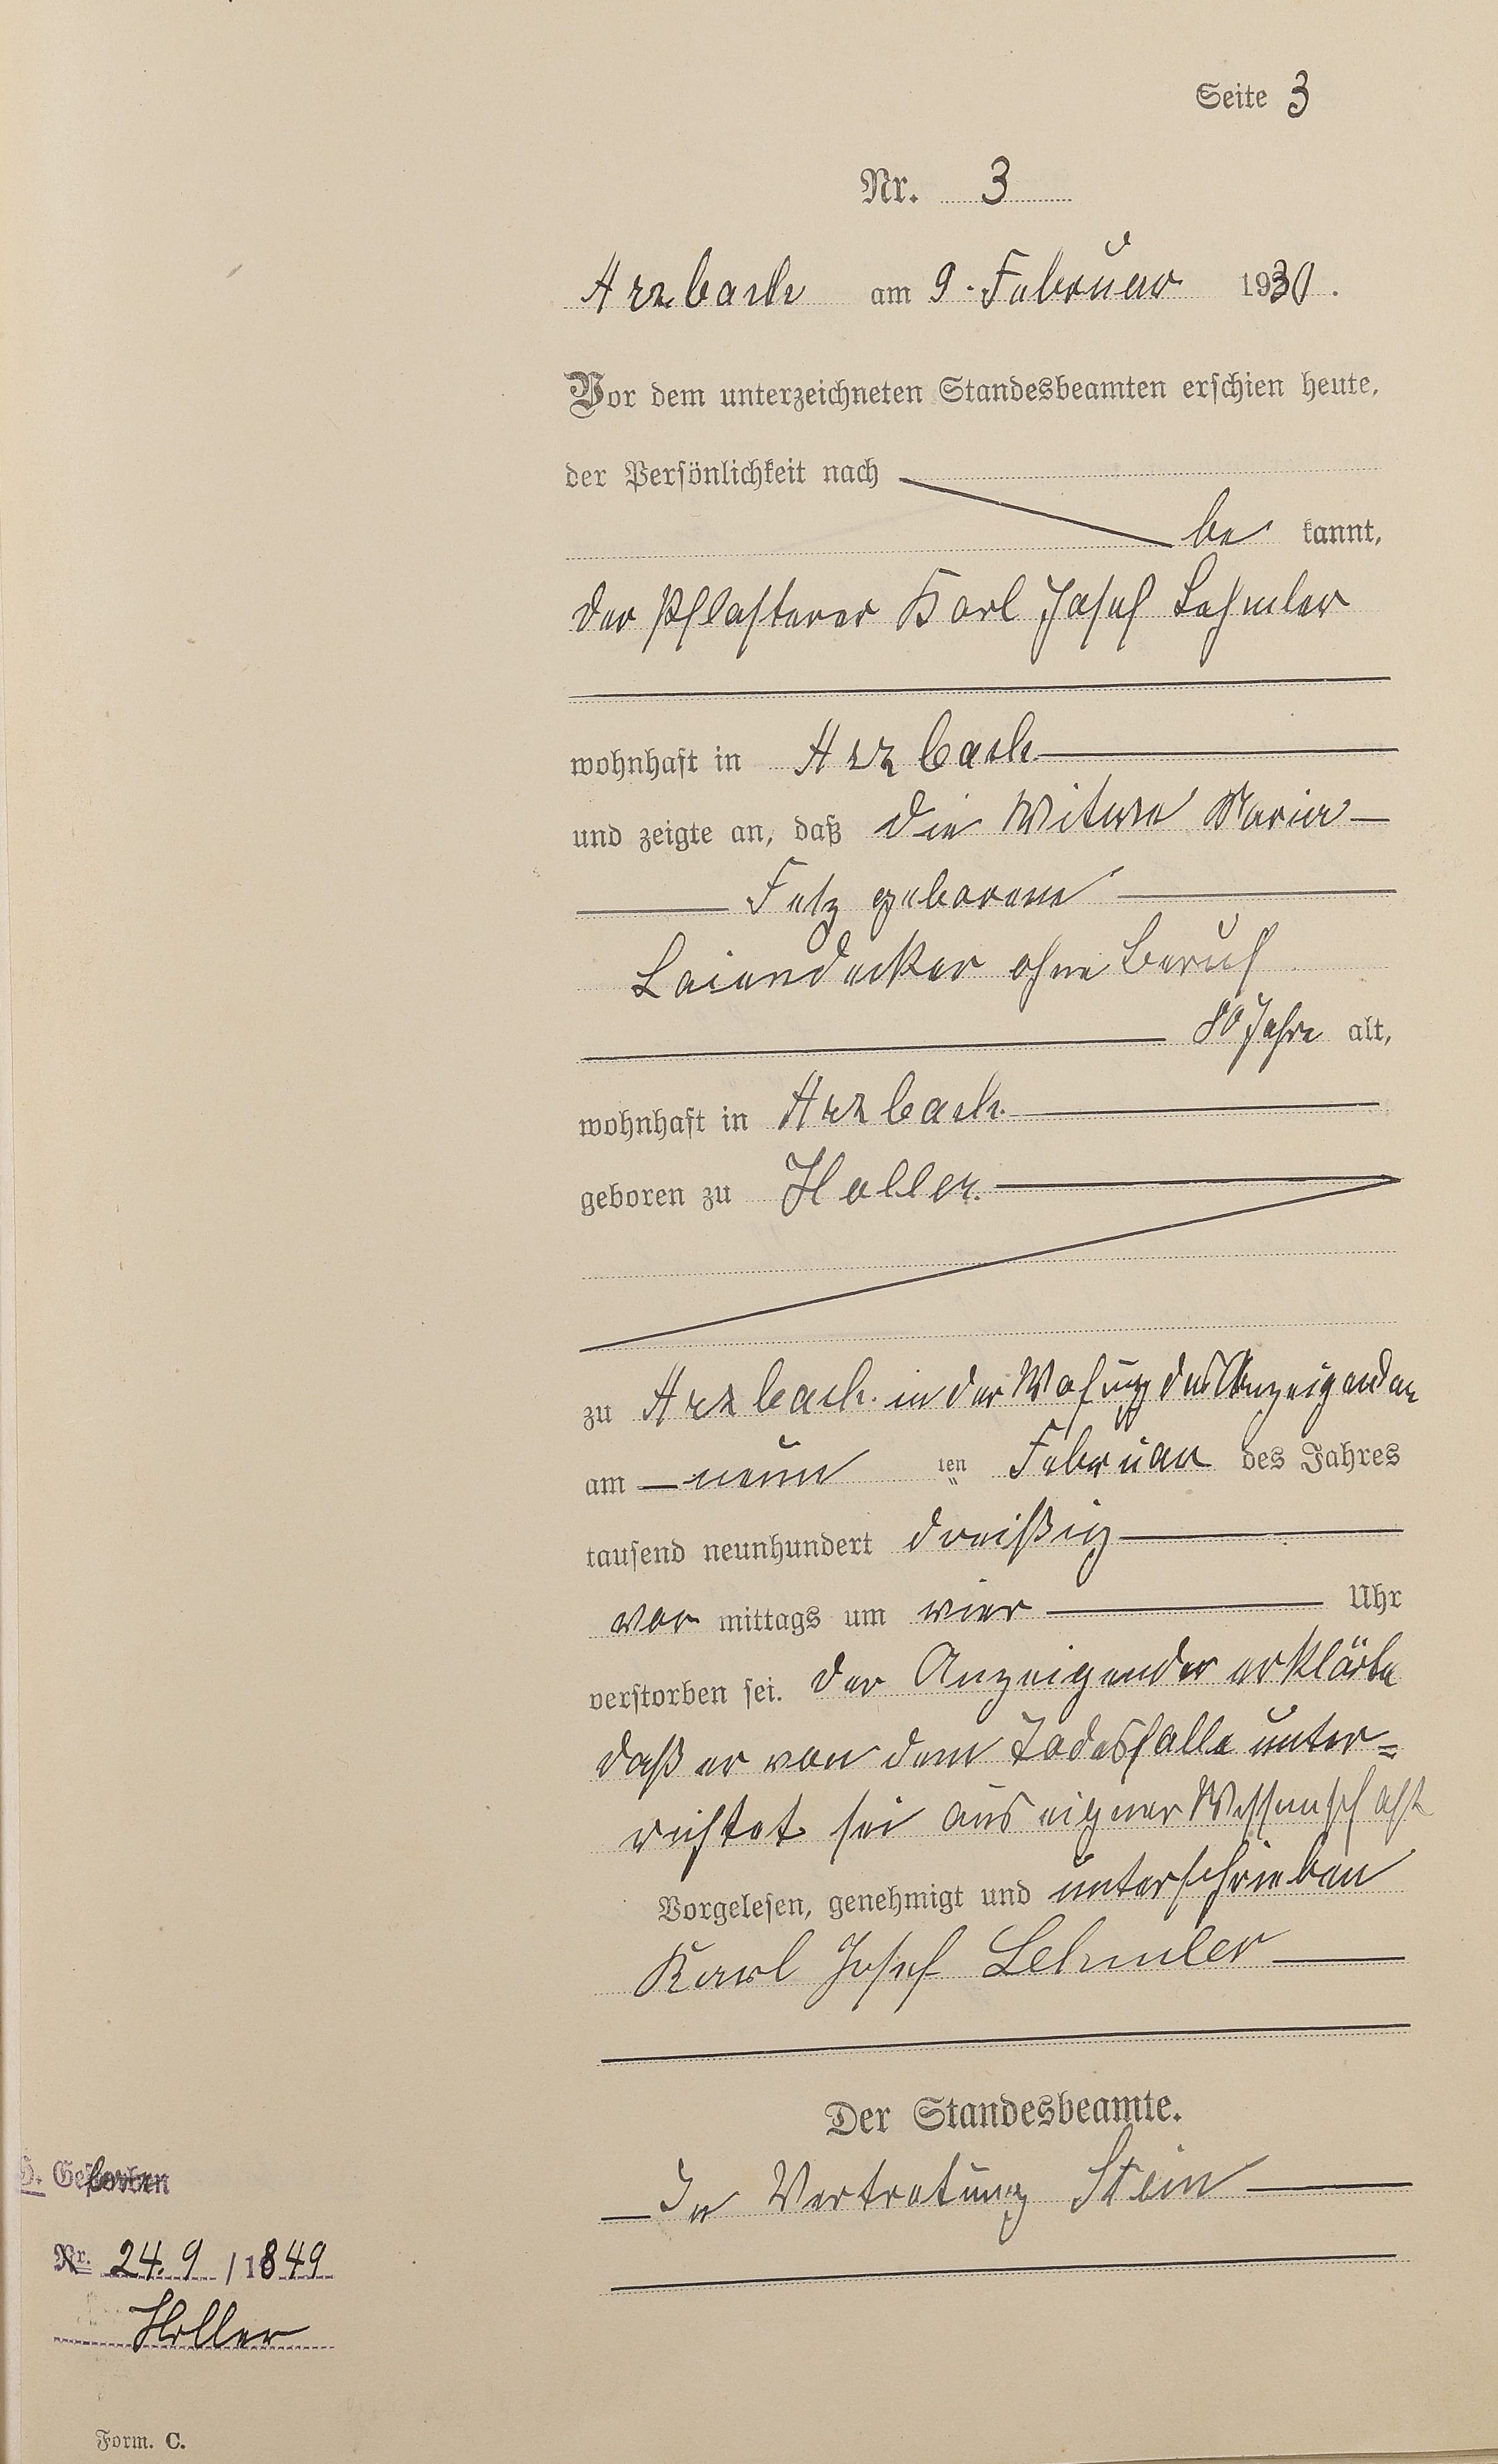 Seite 3
Nr. 3
Arzbach am 9. Februar 1930.
Vor dem unterzeichneten Standesbeamten erschien heute,
der Persönlichkeit nach
be kannt,
der Pflasterer Karl Josef Lehmler
wohnhaft in Arzbach
und zeigte an, daß die Witwe Maria
Fetz geborene
Laiendecker ohne Beruf
80 Jahre alt,
wohnhaft in Arzbach
geboren zu Holler
zu Arzbach in der Wohnung des Anzeigenden
am neun ten Februar des Jahres
tausend neunhundert dreißig
vor mittags um vier Uhr
verstorben sei. Der Anzeigender erklärte
daß er von dem Todesfalle unter=
richtet sei aus eigner Wissenschaft
Vorgelesen, genehmigt und unterschrieben
Karl Josef Lehmler
Der Standesbeamte.
In Vertretung Stein
Nr. 24.9 / 1849
Holler
Form. C.